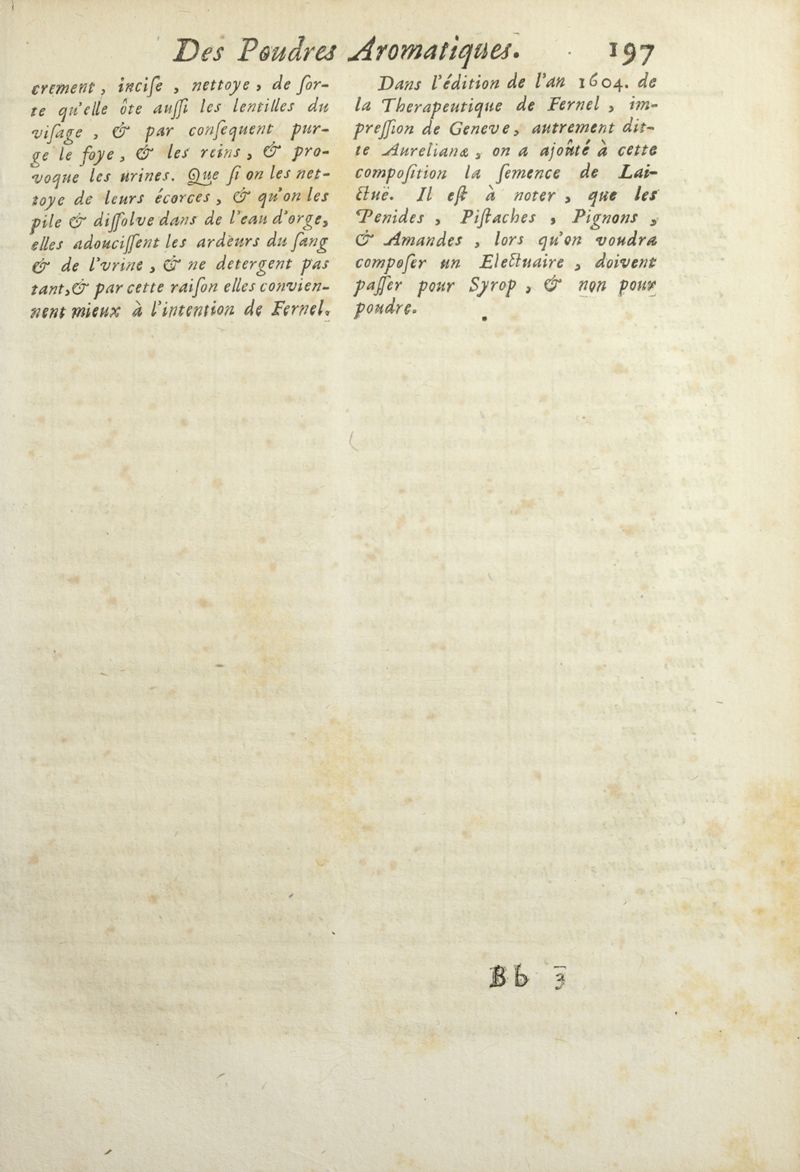 Des Poudres Aromatiques. 197
crement, incise, nettoye, de sor-
te qu'elle ôte aussi les lentilles du
visage, & par consequent pur-
ge le foye, & les reins, & pro-
voque les urines. Que si on les net-
toye de leurs écorces, & qu'on les
pile & dissolve dans de l'eau d'orge,
elles adoucissent les ardeurs du sang
& de l'vrine, & ne detergent pas
tant, & par cette raison elles convien-
nent mieux à l'intention de Fernel.
Dans l'édition de l'an 1604. de
la Therapeutique de Fernel, im-
pression de Geneve, autrement dit-
te Aurelianæ, on a ajoûté à cette
composition la semence de Lai-
ctuë. Il est à noter, que les
Penides, Pistaches, Pignons,
& Amandes, lors qu'on voudra
composer un Electuaire, doivent
passer pour Syrop, & non pour
poudre.
Bb 3